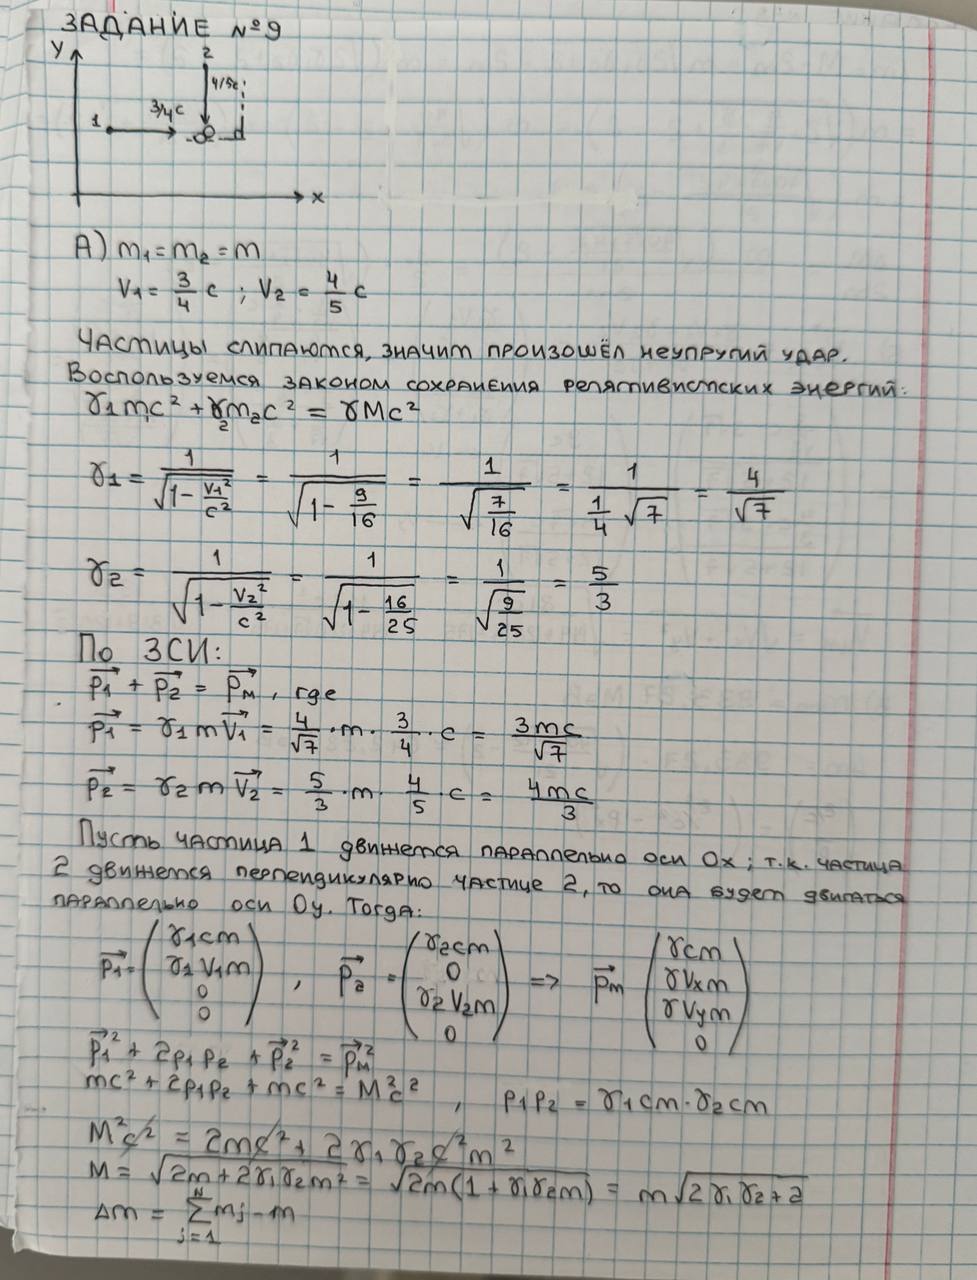 ЗАДАНИЕ №9
y
2
4/5c
3/4 c
1
x
А) m₁ = m₂ = m
V₁ = 3/4 c ; V₂ = 4/5 c
Частицы слипаются, значит произошёл неупругий удар.
Воспользуемся законом сохранения релятивистских энергий:
γ₁mc² + γ₂m₂c² = γMc²
γ₁ = 1/√(1 - V₁²/c²) = 1/√(1 - 9/16) = 1/√(7/16) = 1/(1/4 √7) = 4/√7
γ₂ = 1/√(1 - V₂²/c²) = 1/√(1 - 16/25) = 1/√(9/25) = 5/3
По ЗСИ:
p₁⃗ + p₂⃗ = p_M⃗, где
p₁⃗ = γ₁mV₁⃗ = 4/√7 · m · 3/4 · c = 3mc/√7
p₂⃗ = γ₂mV₂⃗ = 5/3 · m · 4/5 · c = 4mc/3
Пусть частица 1 движется параллельно оси Ox; т.к. частица
2 движется перпендикулярно частице 2, то она будет двигаться
параллельно оси Oy. Тогда:
p₁⃗ = (γ₁cm, γ₁V₁m, 0, 0), p₂⃗ = (γ₂cm, 0, γ₂V₂m, 0) => p_m⃗ (γcm, γVxm, γVym, 0)
p₁⃗² + 2p₁p₂ + p₂⃗² = p_M⃗²
mc² + 2p₁p₂ + mc² = M²c² , p₁p₂ = γ₁cm·γ₂cm
M²c² = 2mc² + 2γ₁γ₂c²m²
M = √(2m + 2γ₁γ₂m²) = √(2m(1 + γ₁γ₂m)) = m√(2γ₁γ₂ + 2)
Δm = Σ_{j=1}^{N} mj - m